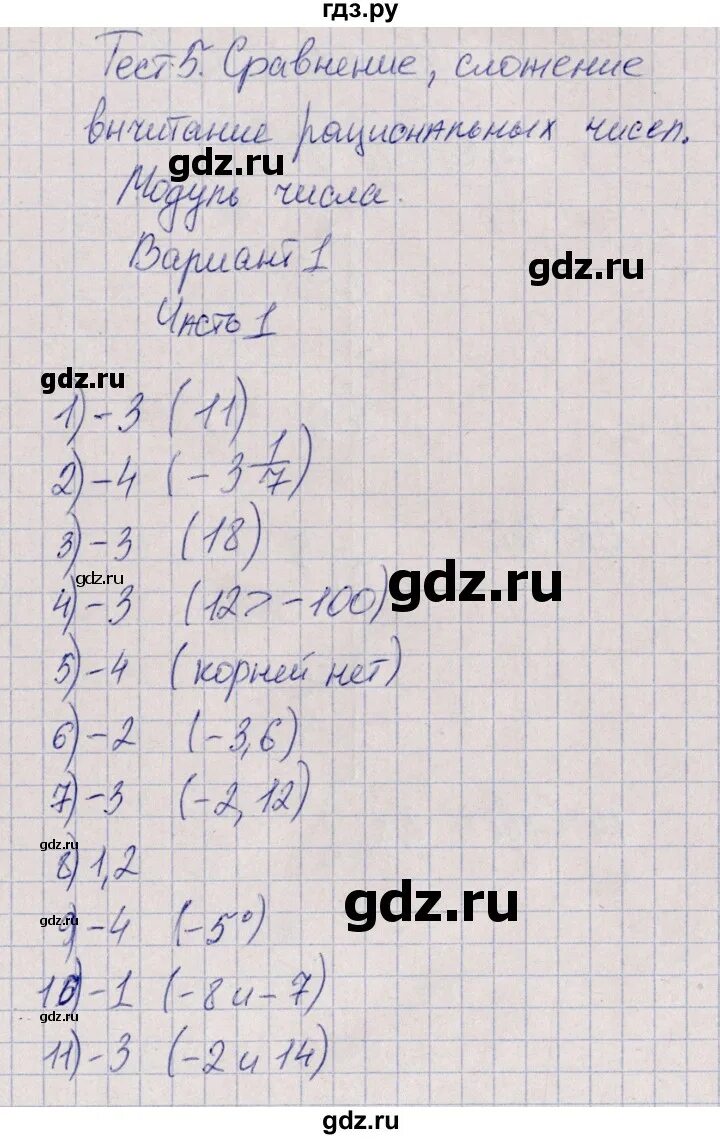 гдз.ру
Тест 5. Сравнение, сложение
вычитание рациональных чисел.
gdz.ru
Модуль числа.
Вариант 1
gdz.ru
Часть 1
gdz.ru
1) - 3 (11)
2) - 4 (-3 1/7)
3) - 3 (18)
gdz.ru
gdz.ru
4) - 3 (12 > -100)
5) - 4 (корней нет)
6) - 2 (-3,6)
7) - 3 (-2,12)
gdz.ru
8) 1,2
gdz.ru
gdz.ru
9) - 4 (-5°)
10) - 1 (-8 и -7)
gdz.ru
11) - 3 (-2 и 14)
gdz.ru